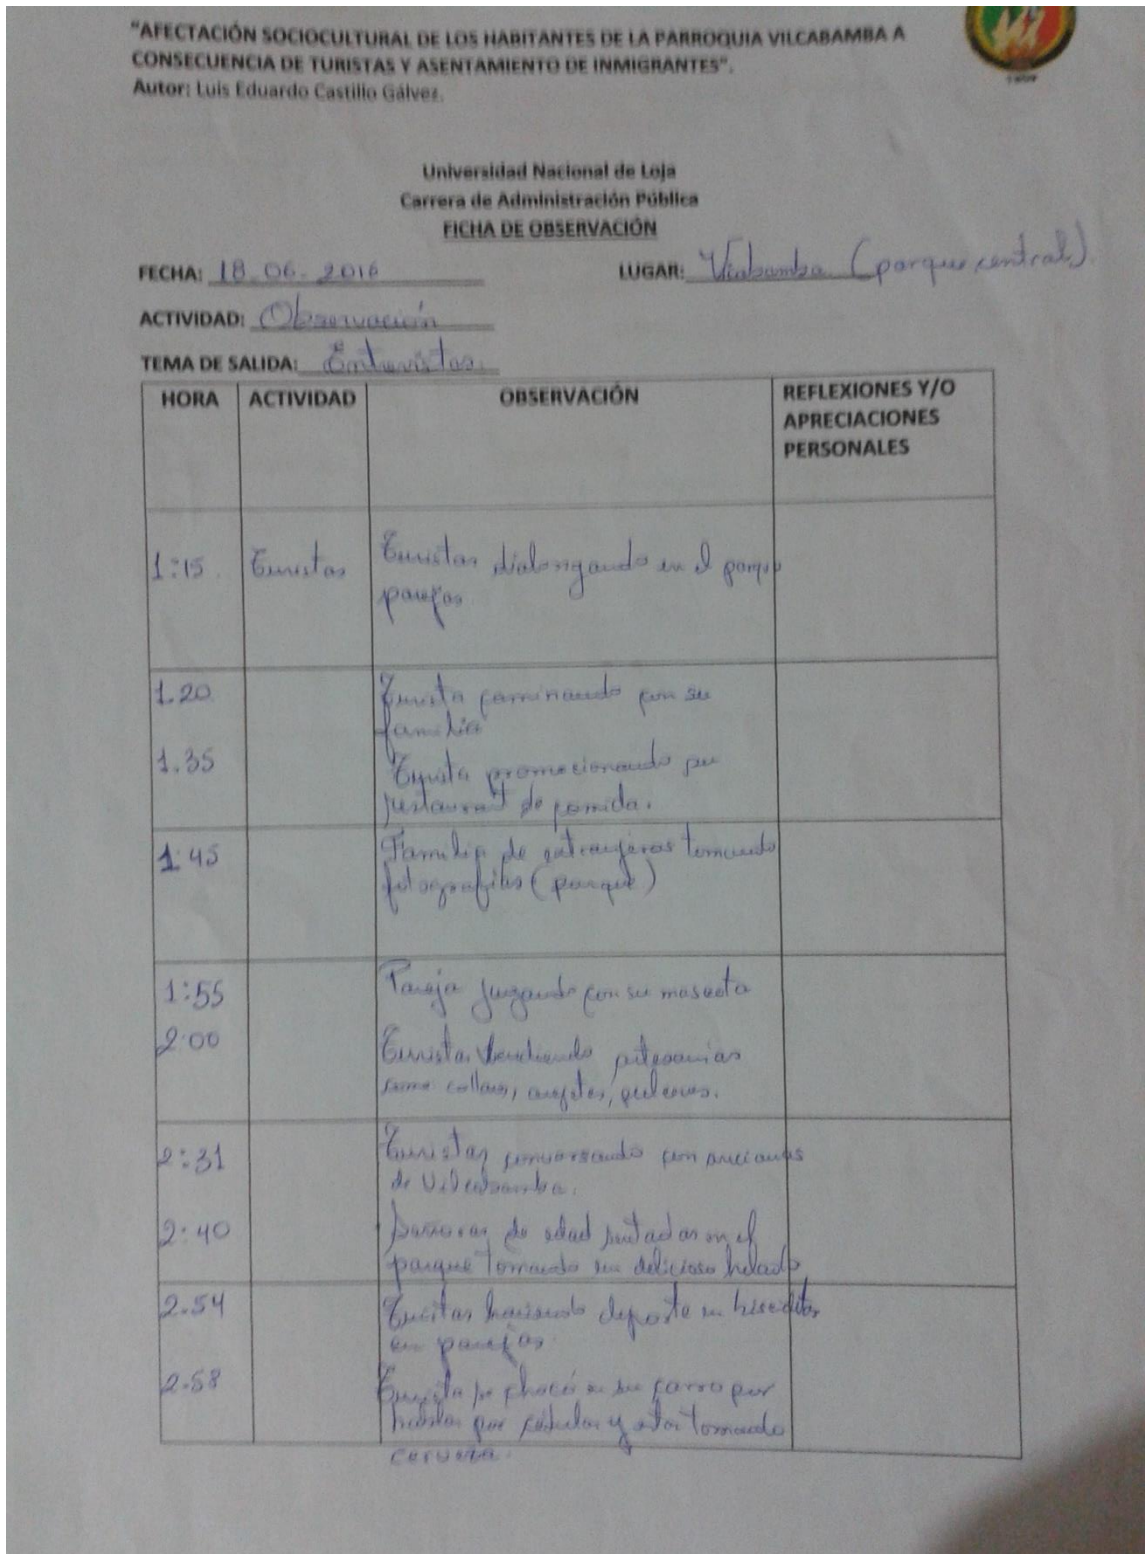 "AFECTACIÓN SOCIOCULTURAL DE LOS HABITANTES DE LA PARROQUIA VILCABAMBA A
CONSECUENCIA DE TURISTAS Y ASENTAMIENTO DE INMIGRANTES".
Autor: Luis Eduardo Castillo Gálvez.
Universidad Nacional de Loja
Carrera de Administración Pública
FICHA DE OBSERVACIÓN
FECHA: 18-06-2016 LUGAR: Vicabamba (parque central).
ACTIVIDAD: Observación
TEMA DE SALIDA: Entrevistas.
HORA ACTIVIDAD OBSERVACIÓN REFLEXIONES Y/O
APRECIACIONES
PERSONALES
1:15. Turistas Turistas dialongando en el parque
parejas
1.20 Turista caminando con su
familia
1.35 Turista promocionando su
restaurant de comida.
1:45 Familia de extranjeros tomando
fotografias (parque)
1:55 Pareja jugando con su mascota
2:00 Turistas vendiendo artesanias
como collares, aretes, pulceras.
2:31 Turistas conversando con ancianas
de Vilcabamba.
2:40 Señoras de edad sentadas en el
parque tomando un delicioso helado
2.54 Turistas haciendo deporte en
en parejas.
2.58 Turista se chocó en su carro por
hablar por celular y estar tomando
cerveza.